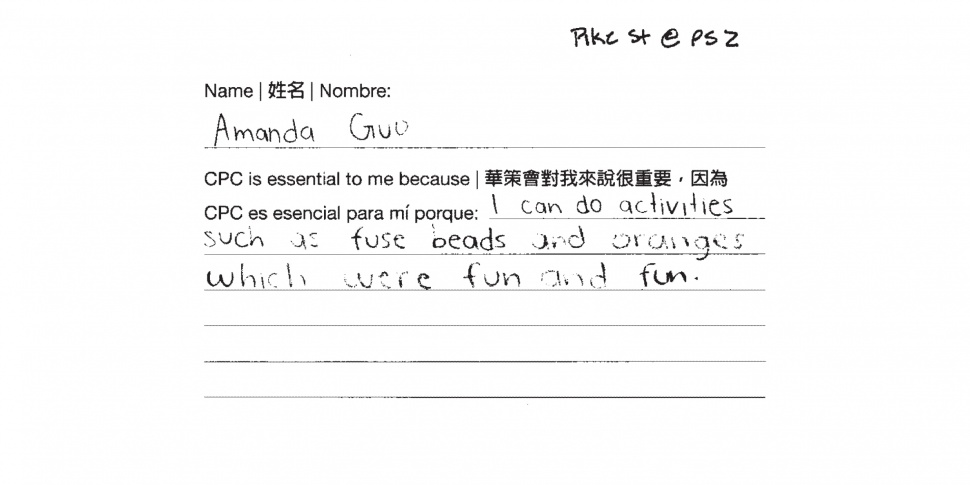 Pike St @ PS 2
Name | 姓名 | Nombre:
Amanda Guo
CPC is essential to me because | 華策會對我來說很重要，因為
CPC es esencial para mí porque: I can do activities
such as fuse beads and oranges
which were fun and fun.